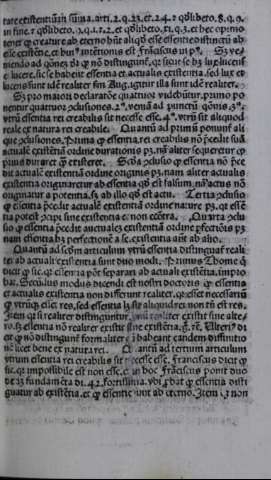 tare existentiam in suma. arti. 2. q. 23. et. 24. 2. qdlibeto. 8. q. 9.
in fine. 7 qdlibeto. 9. q. 1. 2. et qdlibeto. 11. q. 3. et hec opinio
tenet q creature ab eterno hnt aliqd esse essentie distinctu ab
esse existentie. et hui9 intentionis est Franciscus in p9. Sz ve
niendo ad qones dr q no distingunt. qr sicut se hz lux lucens
e lucere. sic se habent essentia et actualis existentia. sed lux et
lucens sunt ide realiter sm Aug. igitur illa sunt ide realiter.
Sz pro maiori declaratione quatuor videbuntur. primo po
nentur quatuor pclusiones. 2o. venia ad punctu qonis. 3o.
vtru essentia rei creabilis sit necesse esse. 4o. vtru sit aliquod
reale ex natura rei creabile. Quantu ad primu ponunt ali
que pclusiones. Prima q essentia rei creabilis no pcedit sua
actuale existentia ordine durationis. na aliter sequeretur q
prius duraret q existeret. Scda pclusio q essentia no pce
dit actuale existentia ordine originis. na aliter actualis
existentia originaretur ab essentia qd est falsum. na actus no
originatur a potentia. sz ab illo qd est actu. Tertia pclusio
q essentia pcedit actuale existentia ordine nature
tia potest sine existentia e. non econtra. Quarta pclu
sio q essentia pcedit actuales existentia ordine pfectionis
nam essentia hz perfectione a se. existentia aut ab alio.
Quantu ad scdm articulum vtru essentia distinguat reali
ter ab actuali existentia sunt duo modi. Primus Thome q
dicit q sic. qr essentia pot separari ab actuali existentia. impro
bat. Secundus modus dicendi est nostri doctoris q essentia
et actualis existentia non differunt realiter. qr esset necessariu
q vtruqz esset res. sed essentia hz se aliquo dres non est res.
Item qr si realiter distinguitur. una realiter existit sine alte
ro. sz essentia no realiter existit sine existentia. g. rc. Ulteri9 di
cit q no distingunt formaliter habeant eandem distinctio
ne licet bene ex natura rei. Quantu ad tertium articulum
vtrum essentia rei creabilis sit necesse esse. Franciscus dicit q
sic. qr impossibile est non esse. e. in hoc Franciscus ponit duo
de 12 fundameta di. 42. fortissima. vbi pbat q essentia disti
guatur ab existentia. et q essentie sint ab eterno. Item non